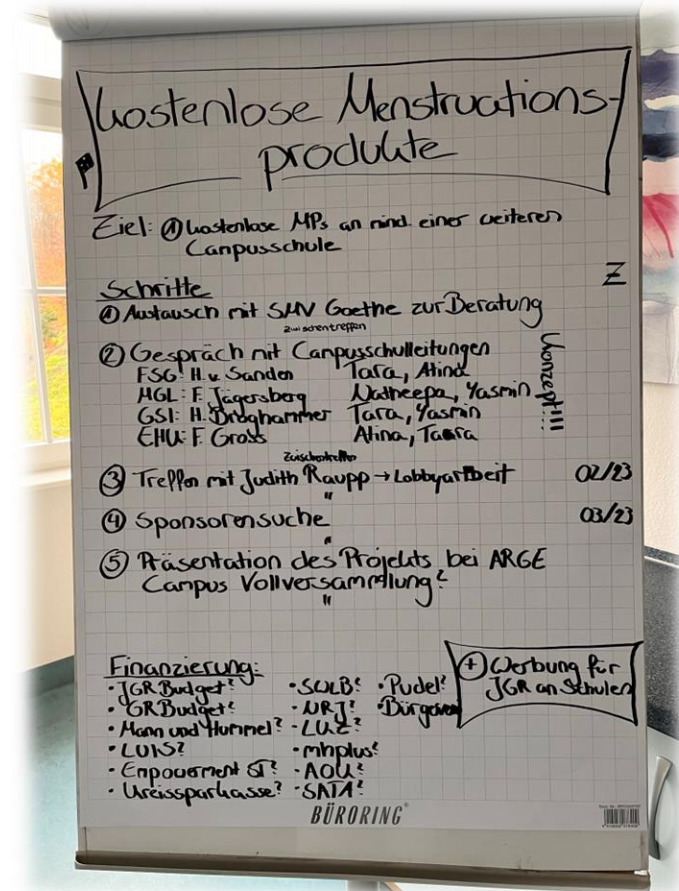 Kostenlose Menstruations-
produkte
Ziel: ① kostenlose MPs an mind. einer weiteren
Campusschule
Z
Schritte
① Austausch mit SMV Goethe zur Beratung
Zwischentreffen
② Gespräch mit Campusschulleitungen
FSG: H. v. Sanden Tara, Atina
MGL: F. Jägersberg Natheepa, Yasmin
GSI: H. Broghammer Tara, Yasmin
EHK: F. Groß Atina, Tamra
Konzept!!!
Zwischentreffen
③ Treffen mit Judith Raupp → Lobbyarbeit 02/23
"
④ Sponsorensuche 03/23
"
⑤ Präsentation des Projekts bei ARGE
Campus Vollversammlung?
"
Finanzierung:
• JGR Budget? • SWLB? • Pudel?
• GR Budget? • KRJ? • Bürgerver
• Mann und Hummel? • LKZ?
• LUIS? • mhplus?
• Empowerment • AOK?
• Kreissparkasse? • SATA?
⊕ Werbung für
JGR an Schulen
BÜRORING